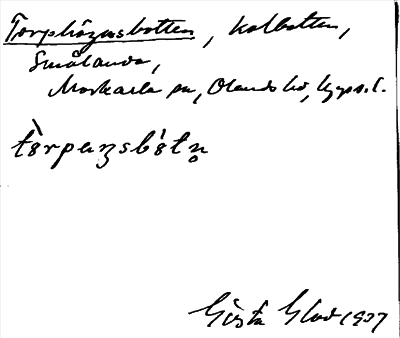 Torphögensbotten, kolbotten,
Smålanda,
Morkarla sn, Olands hd, Upps. l.
tòrpenʒsbótn̥
Gösta Glad 1937